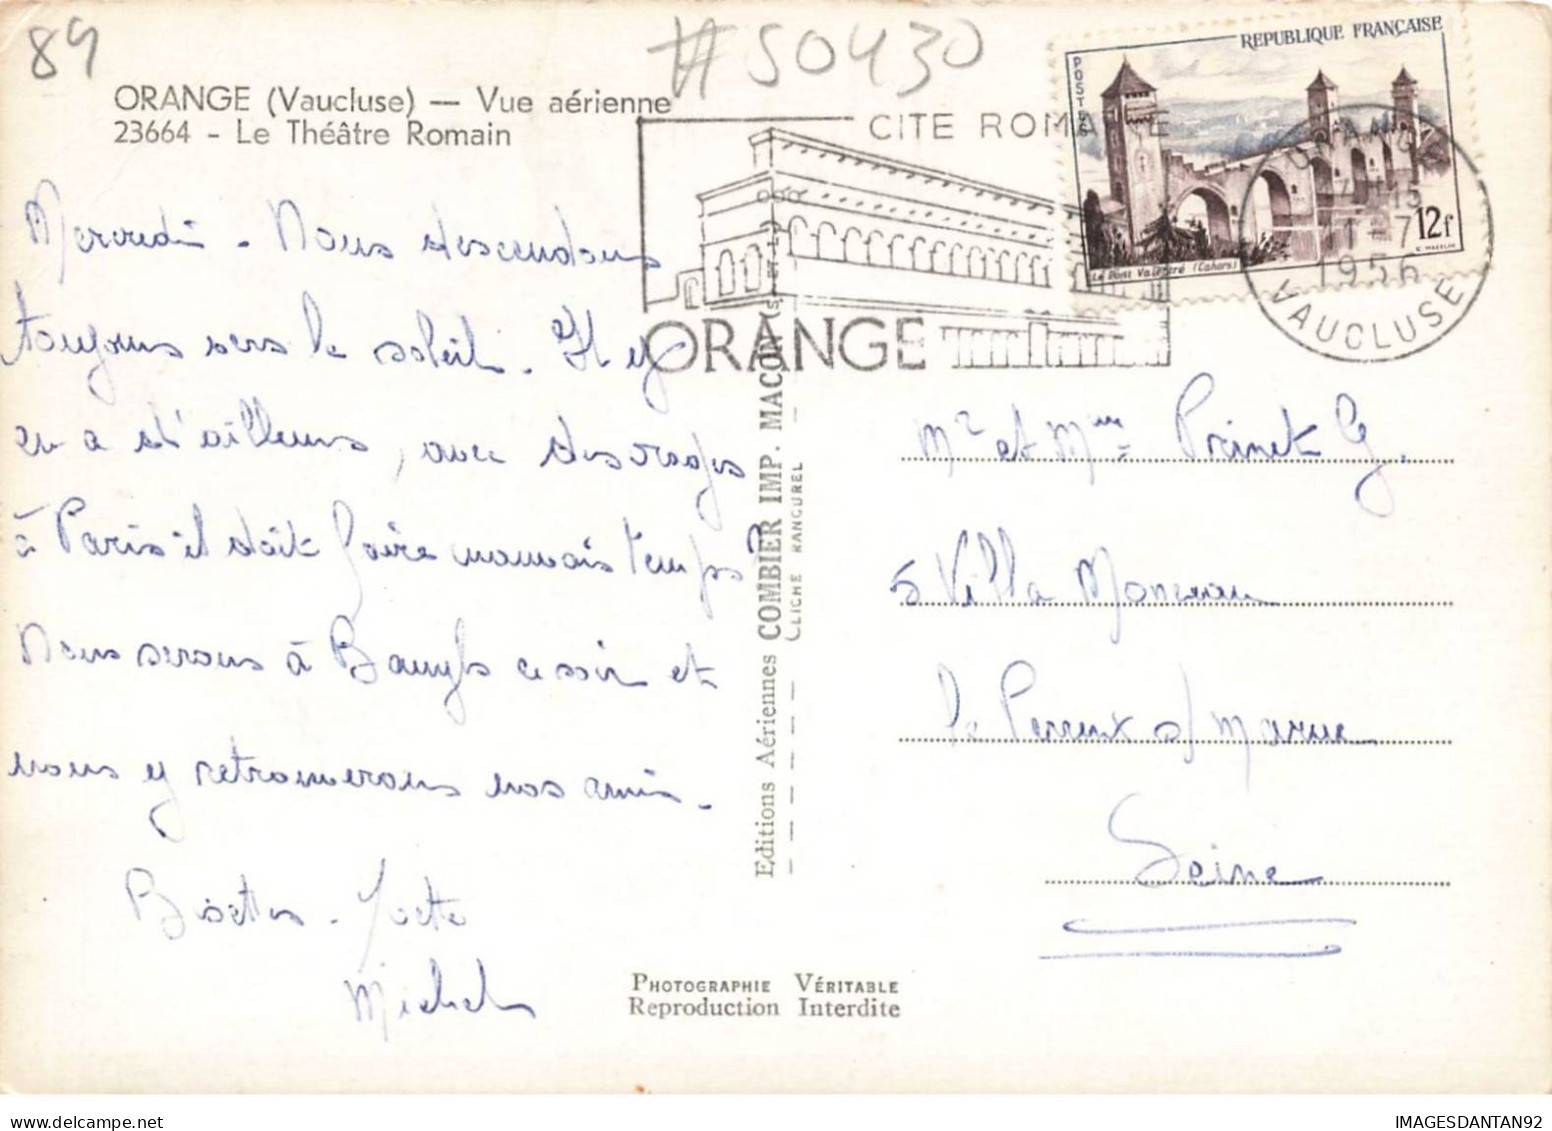 89
#50430
ORANGE (Vaucluse) — Vue aérienne
23664 - Le Théâtre Romain
CITE ROMAINE
ORANGE
REPUBLIQUE FRANÇAISE
POSTES
12f
Le Pont Valentré (Cahors)
ORANGE
1956
VAUCLUSE
Mercredi - Nous descendons
toujours vers le soleil. Il y
en a d'ailleurs, avec des orages
à Paris il doit faire mauvais temps?
Nous serons à Banyuls ce soir et
nous y retrouverons nos amis.
Michel
Editions Aériennes COMBIER IMP. MACON (S.-et-L.)
CLICHÉ RANCUREL
Mr et Mme Prinet G.
5 Villa Monceau
Le Perreux s/ Marne
Seine
PHOTOGRAPHIE VÉRITABLE
Reproduction Interdite
IMAGESDANTAN92